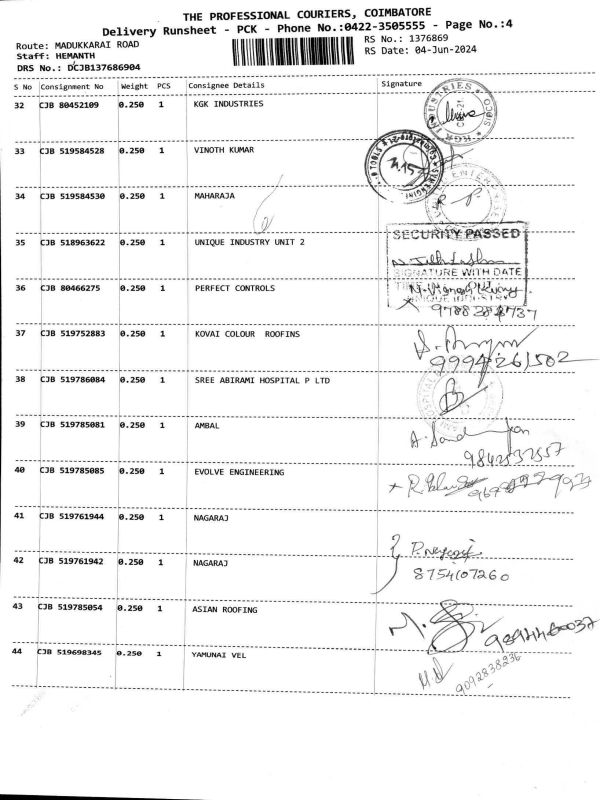 THE PROFESSIONAL COURIERS, COIMBATORE
Delivery Runsheet - PCK - Phone No.:0422-3505555 - Page No.:4
Route: MADUKKARAI ROAD
RS No.: 1376869
Staff: HEMANTH
RS Date: 04-Jun-2024
DRS No.: DCJB137686904
S No Consignment No Weight PCS Consignee Details Signature
32 CJB 80452109 0.250 1 KGK INDUSTRIES
33 CJB 519584528 0.250 1 VINOTH KUMAR
34 CJB 519584530 0.250 1 MAHARAJA
35 CJB 518963622 0.250 1 UNIQUE INDUSTRY UNIT 2
SECURITY PASSED
SIGNATURE WITH DATE
36 CJB 80466275 0.250 1 PERFECT CONTROLS
37 CJB 519752883 0.250 1 KOVAI COLOUR ROOFINS
9994261502
38 CJB 519786084 0.250 1 SREE ABIRAMI HOSPITAL P LTD
39 CJB 519785081 0.250 1 AMBAL
40 CJB 519785085 0.250 1 EVOLVE ENGINEERING
41 CJB 519761944 0.250 1 NAGARAJ
42 CJB 519761942 0.250 1 NAGARAJ
8754107260
43 CJB 519785054 0.250 1 ASIAN ROOFING
44 CJB 519698345 0.250 1 YAMUNAI VEL
9092838236